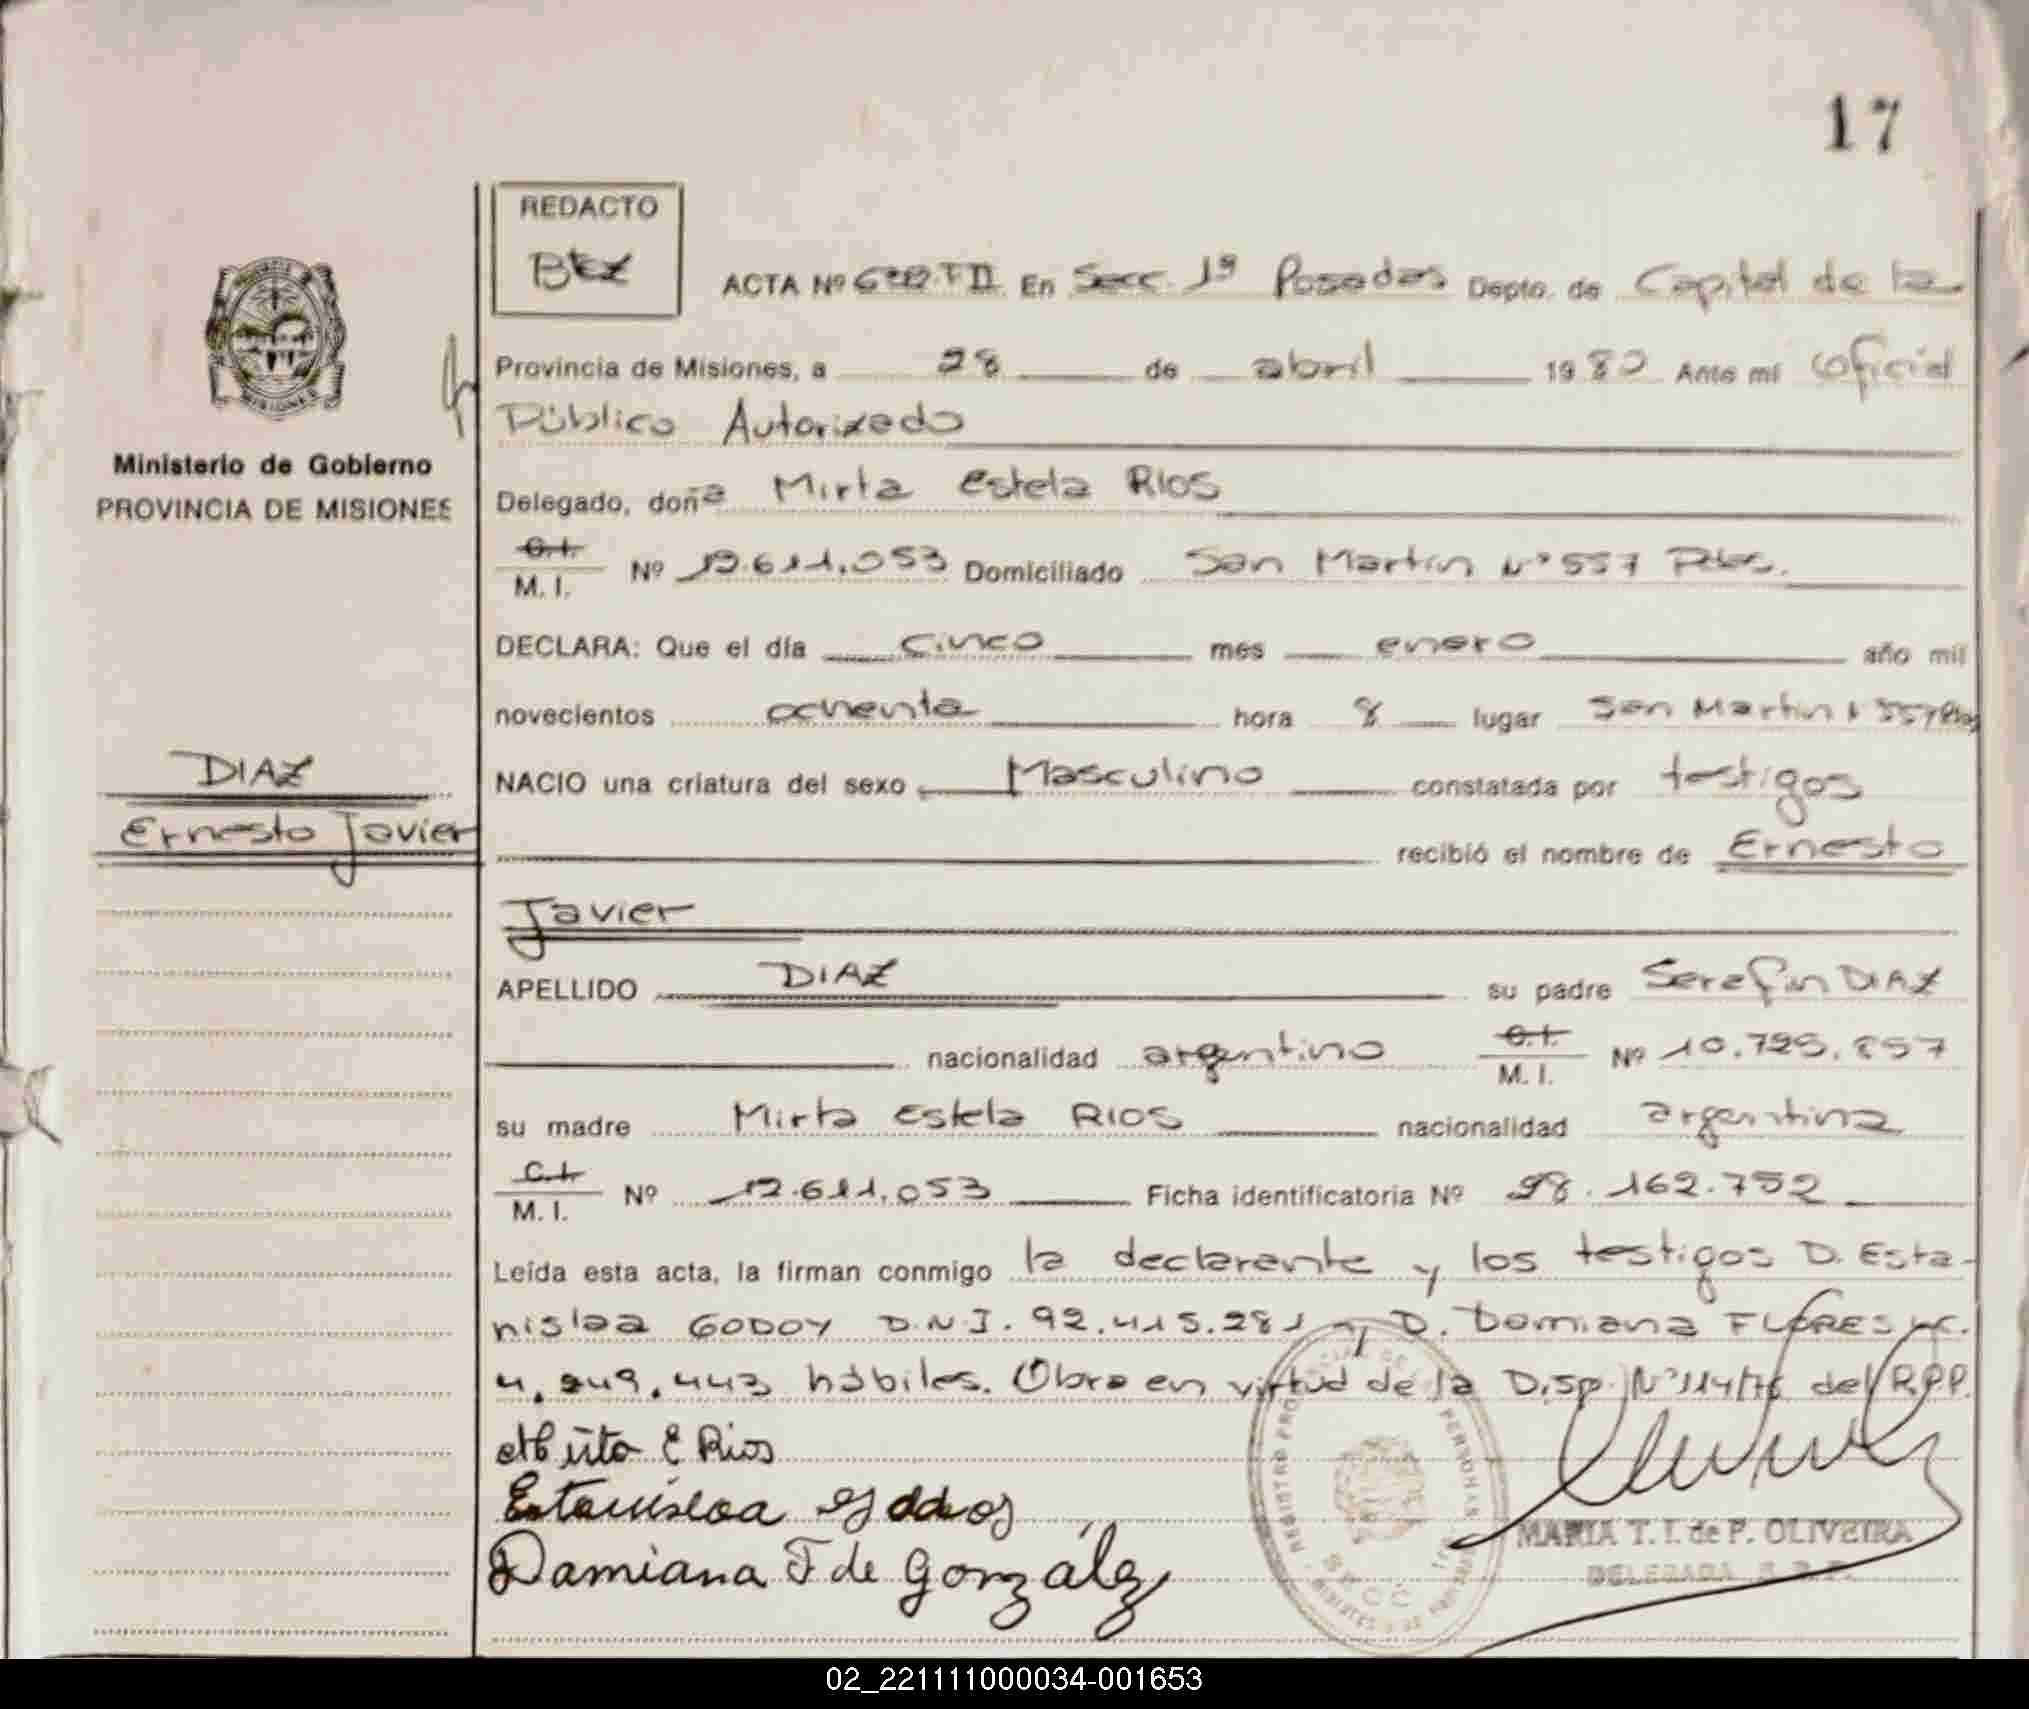 17
REDACTO
ACTA Nº En Secc. 1ª Posadas Depto. de Capital de la
Provincia de Misiones, a 28 de abril 1980 Ante mí oficial
Público Autorizado
Ministerio de Gobierno
PROVINCIA DE MISIONES
Delegado, doña Mirta Estela RIOS
C.I.
M. I. Nº 12.611.053 Domiciliado San Martin Nº 557 Pdas.
DECLARA: Que el día cinco mes enero año mil
novecientos ochenta hora 8 lugar San Martin 557 Pdas
DIAZ
NACIO una criatura del sexo Masculino constatada por testigos
Ernesto Javier
recibió el nombre de Ernesto
Javier
APELLIDO DIAZ su padre Serafin DIAZ
nacionalidad argentino C.I. M. I. Nº
su madre Mirta Estela RIOS nacionalidad argentina
C.I.
M. I. Nº 12.611.053 Ficha identificatoria Nº 28.162.752
Leída esta acta, la firman conmigo la declarante y los testigos D. Esta-
nislaa GODOY D.N.I. 92.415.281 y D. Damiana FLORES
4.249.443 hábiles. Obro en virtud de la Disp. Nº 114/76 del R.P.P.
Mirta E Rios
Estanislaa Godoy
Damiana F de González
REGISTRO PROVINCIAL DE LAS PERSONAS
MARIA T. I. de P. OLIVEIRA
DELEGADA R. P. P.
02_221111000034-001653